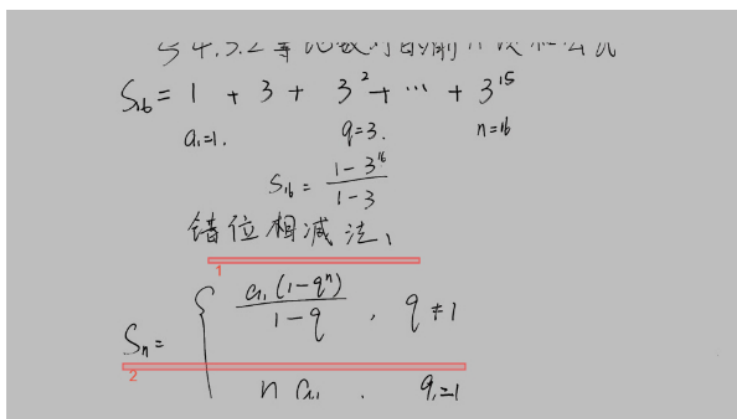 §4.3.2等比数列的前n项和公式
S₁₆ = 1 + 3 + 3² + ⋯ + 3¹⁵
a₁=1. q=3. n=16
S₁₆ = (1-3¹⁶)/(1-3)
错位相减法、
1
Sₙ = { a₁(1-qⁿ)/(1-q) , q≠1
2
na₁ . q=1